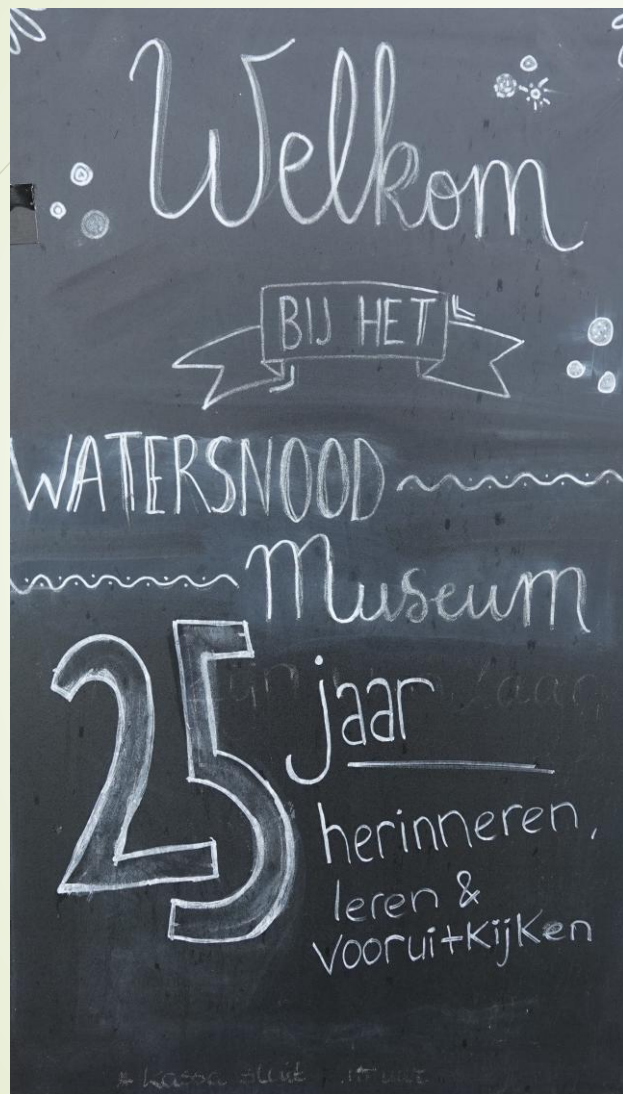 Welkom
BIJ HET
WATERSNOOD
Museum
25 jaar
herinneren,
leren &
vooruitkijken
* kassa sluit